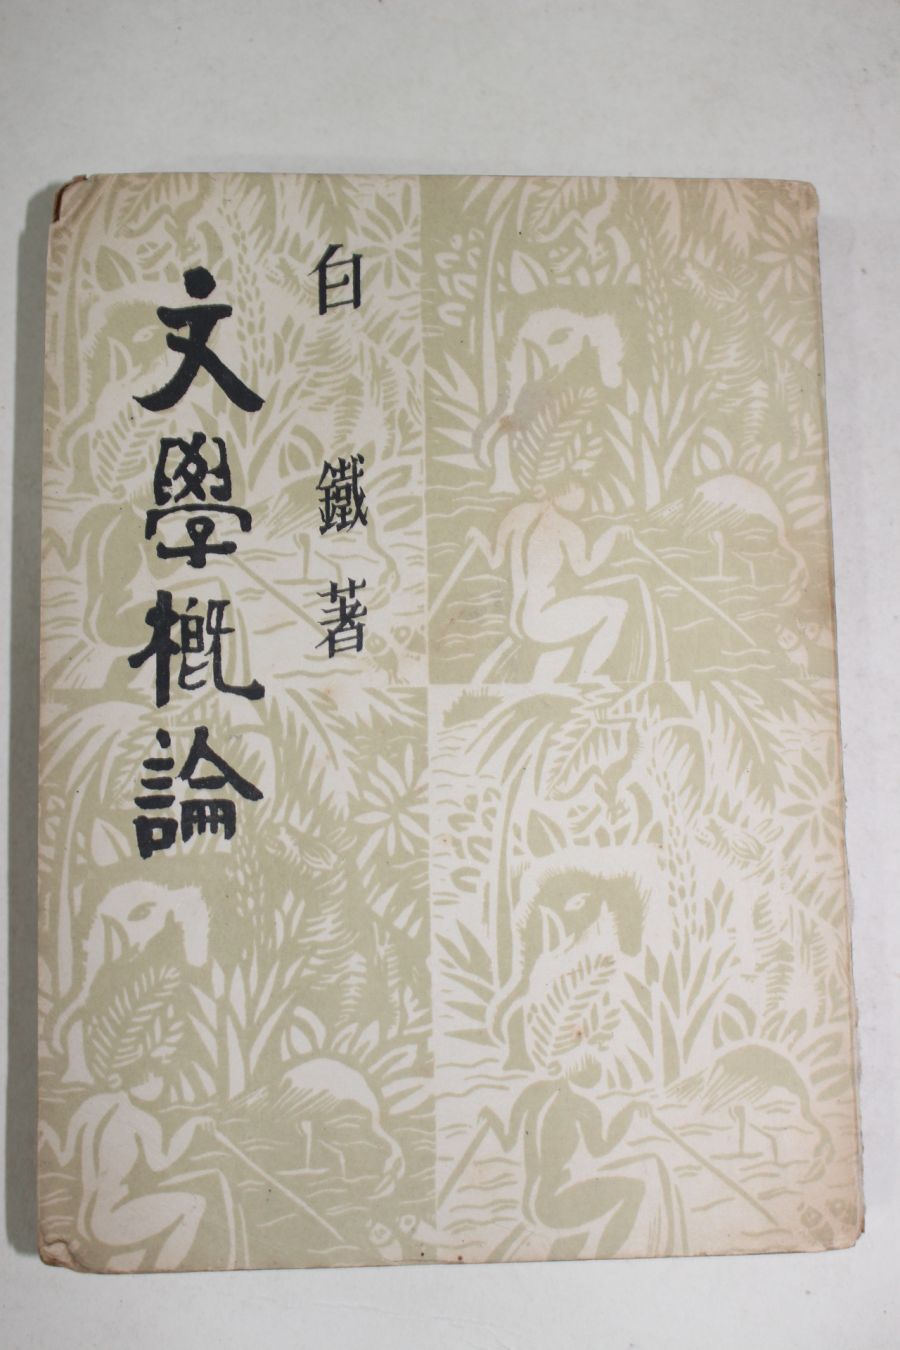 白鐵著
文學概論